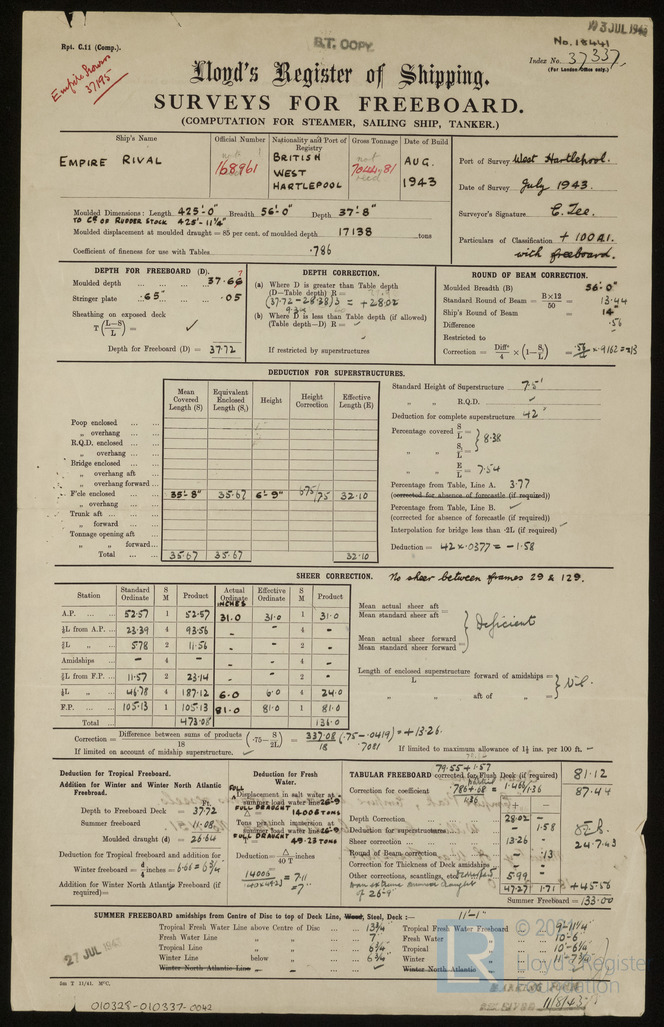 Rpt. C.11 (Comp.).
B.T. COPY.
3 JUL 194
No. 18441
Index No. 37337
(For London Office only.)
Empire
37195
Lloyd's Register of Shipping.
SURVEYS FOR FREEBOARD.
(COMPUTATION FOR STEAMER, SAILING SHIP, TANKER.)
Ship's Name
EMPIRE RIVAL
Official Number
168961
Nationality and Port of Registry
BRITISH
WEST
HARTLEPOOL
Gross Tonnage
7044.81
Date of Build
AUG.
1943
Port of Survey West Hartlepool.
Date of Survey July 1943.
Surveyor's Signature
Particulars of Classification + 100 A1.
with freeboard.
Moulded Dimensions: Length 425'-0" Breadth 56'-0" Depth 37'-8"
TO C.L. OF RUDDER STOCK 425'-11¼"
Moulded displacement at moulded draught = 85 per cent. of moulded depth 17138 tons
Coefficient of fineness for use with Tables .786
DEPTH FOR FREEBOARD (D).
Moulded depth 37.66
Stringer plate .65" .05
Sheathing on exposed deck
T(L–S/L) =
Depth for Freeboard (D) = 37.72
DEPTH CORRECTION.
(a) Where D is greater than Table depth
(D—Table depth) R =
(37.72 – 28.38)3 = +28.02
(b) Where D is less than Table depth (if allowed)
(Table depth—D) R =
If restricted by superstructures
ROUND OF BEAM CORRECTION.
Moulded Breadth (B) 56'-0"
Standard Round of Beam = B×12/50 = 13.44
Ship's Round of Beam = 14"
Difference .56
Restricted to
Correction = Diff/4 × (1–S₁/L) = .56/4 × .9162 = .13
DEDUCTION FOR SUPERSTRUCTURES.
Mean Covered Length (S)
Equivalent Enclosed Length (S₁)
Height
Height Correction
Effective Length (E)
Poop enclosed
„ overhang
R.Q.D. enclosed
„ overhang
Bridge enclosed
„ overhang aft
„ overhang forward
F'cle enclosed 35'-8" 35.67 6'-9" 6.75/7.5 32.10
„ overhang
Trunk aft
„ forward
Tonnage opening aft
„ „ forward
Total 35.67 35.67 32.10
Standard Height of Superstructure 7.5'
„ „ R.Q.D.
Deduction for complete superstructure 42"
Percentage covered S/L =
„ „ S₁/L = 8.38
„ „ E/L = 7.54
Percentage from Table, Line A. 3.77
(corrected for absence of forecastle (if required))
Percentage from Table, Line B.
(corrected for absence of forecastle (if required))
Interpolation for bridge less than ·2L (if required)
Deduction = 42 × .0377 = – 1.58
SHEER CORRECTION. No sheer between frames 29 & 129.
Station
Standard Ordinate
S M
Product
Actual Ordinate
INCHES
Effective Ordinate
S M
Product
A.P. 52.57 1 52.57 31.0 31.0 1 31.0
⅙L from A.P. 23.39 4 93.56 - - 4 -
⅓L „ 5.78 2 11.56 - - 2 -
Amidships - 4 - - - 4 -
⅓L from F.P. 11.57 2 23.14 - - 2 -
⅙L „ 46.78 4 187.12 6.0 6.0 4 24.0
F.P. 105.13 1 105.13 81.0 81.0 1 81.0
Total 473.08 136.0
Mean actual sheer aft
Mean standard sheer aft =
Mean actual sheer forward
Mean standard sheer forward =
Deficient
Length of enclosed superstructure/L forward of amidships =
„ „ aft of „ =
Nil.
Correction = Difference between sums of products/18 (·75–S/2L) = 337.08/18 (.75 – .0419) = + 13.26.
.7081
If limited on account of midship superstructure.
If limited to maximum allowance of 1½ ins. per 100 ft.
Deduction for Tropical Freeboard.
Addition for Winter and Winter North Atlantic Freeboard.
Ft.
Depth to Freeboard Deck = 37.72
Summer freeboard = 11.08
Moulded draught (d) = 26.64
Deduction for Tropical freeboard and addition for
Winter freeboard = d/4 inches = 6.66 = 6¾
Addition for Winter North Atlantic Freeboard (if required) =
Deduction for Fresh Water.
FULL
Displacement in salt water at summer load water line 26-9
FULL DRAUGHT
Δ = 14006 TONS
Tons per inch immersion at summer load water line 26-9
FULL DRAUGHT
49.23 TONS
Deduction = Δ/40 T inches
14006/(40×49.23) = 7.11
= 7"
79.55 + 1.57
TABULAR FREEBOARD corrected for Flush Deck (if required) 81.12
Correction for coefficient .786+.68/1.36 = 1.466/1.36 87.44
+ -
Depth Correction 28.02 -
Deduction for superstructures - 1.58
Sheer correction 13.26
Round of Beam correction - .13
Correction for Thickness of Deck amidships
Other corrections, scantlings, etc 5.99
extreme summer draught
of 26'-9"
47.27 1.71 +45.56
Summer Freeboard = 133.00
24.7.43
SUMMER FREEBOARD amidships from Centre of Disc to top of Deck Line, Wood, Steel, Deck:— 11'-1"
Tropical Fresh Water Line above Centre of Disc 13¾"
Fresh Water Line „ „ 7"
Tropical Line „ „ 6¾"
Winter Line below „ 6¾"
Winter North Atlantic Line „ „
Tropical Fresh Water Freeboard 9'-11¼"
Fresh Water „ 10'-6"
Tropical „ 10'-6¼"
Winter „ 11'-7¾"
Winter North Atlantic „
27 JUL 194
2m T 11/41. M*C.
010328-010337-0042
11/8/43
LR
© 20
Lloyd's Register
Foundation